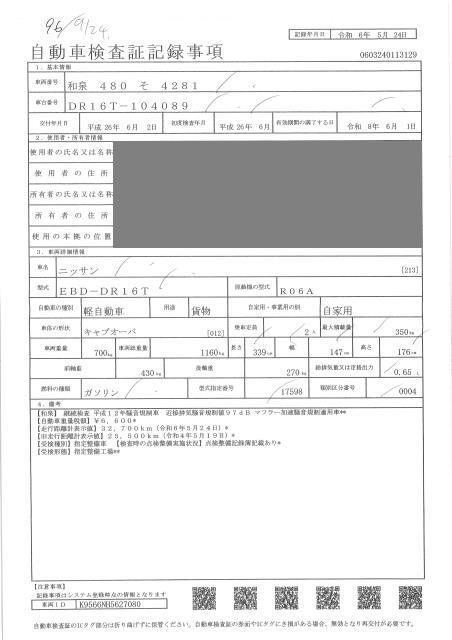 96 9/24
記録年月日 令和 6年 5月 24日
自動車検査証記録事項
0603240113129
1. 基本情報
車両番号 和泉 480 そ 4281
車台番号 DR16T-104089
交付年月日 平成 26年 6月 2日 初度検査年月 平成 26年 6月 有効期間の満了する日 令和 8年 6月 1日
2. 使用者・所有者情報
使用者の氏名又は名称
使用者の住所
所有者の氏名又は名称
所有者の住所
使用の本拠の位置
3. 車両詳細情報
車名 ニッサン [213]
型式 EBD-DR16T 原動機の型式 R06A
自動車の種別 軽自動車 用途 貨物 自家用・事業用の別 自家用
車体の形状 キャブオーバ [012] 乗車定員 2人 最大積載量 350kg
車両重量 700kg 車両総重量 1160kg 長さ 339cm 幅 147cm 高さ 176cm
前軸重 430kg 後軸重 270kg 総排気量又は定格出力 0.65L
燃料の種類 ガソリン 型式指定番号 17598 類別区分番号 0004
4. 備考
【和泉】 継続検査 平成12年騒音規制車 近接排気騒音規制値97dB マフラー加速騒音規制適用車**
【自動車重量税額】￥6,600*
【走行距離計表示値】32,700km (令和6年5月24日)*
【旧走行距離計表示値】25,500km (令和4年5月19日)*
【受検種別】指定整備車 【検査時の点検整備実施状況】点検整備記録簿記載あり*
【受検形態】指定整備工場**
【注意事項】
記録事項はシステム登録時点の情報となります
車両ID K9566NH5627080
自動車検査証のICタグ部分は折り曲げずに保管ください。自動車検査証の券面やICタグにき損がある場合、無効となり再交付が必要です。